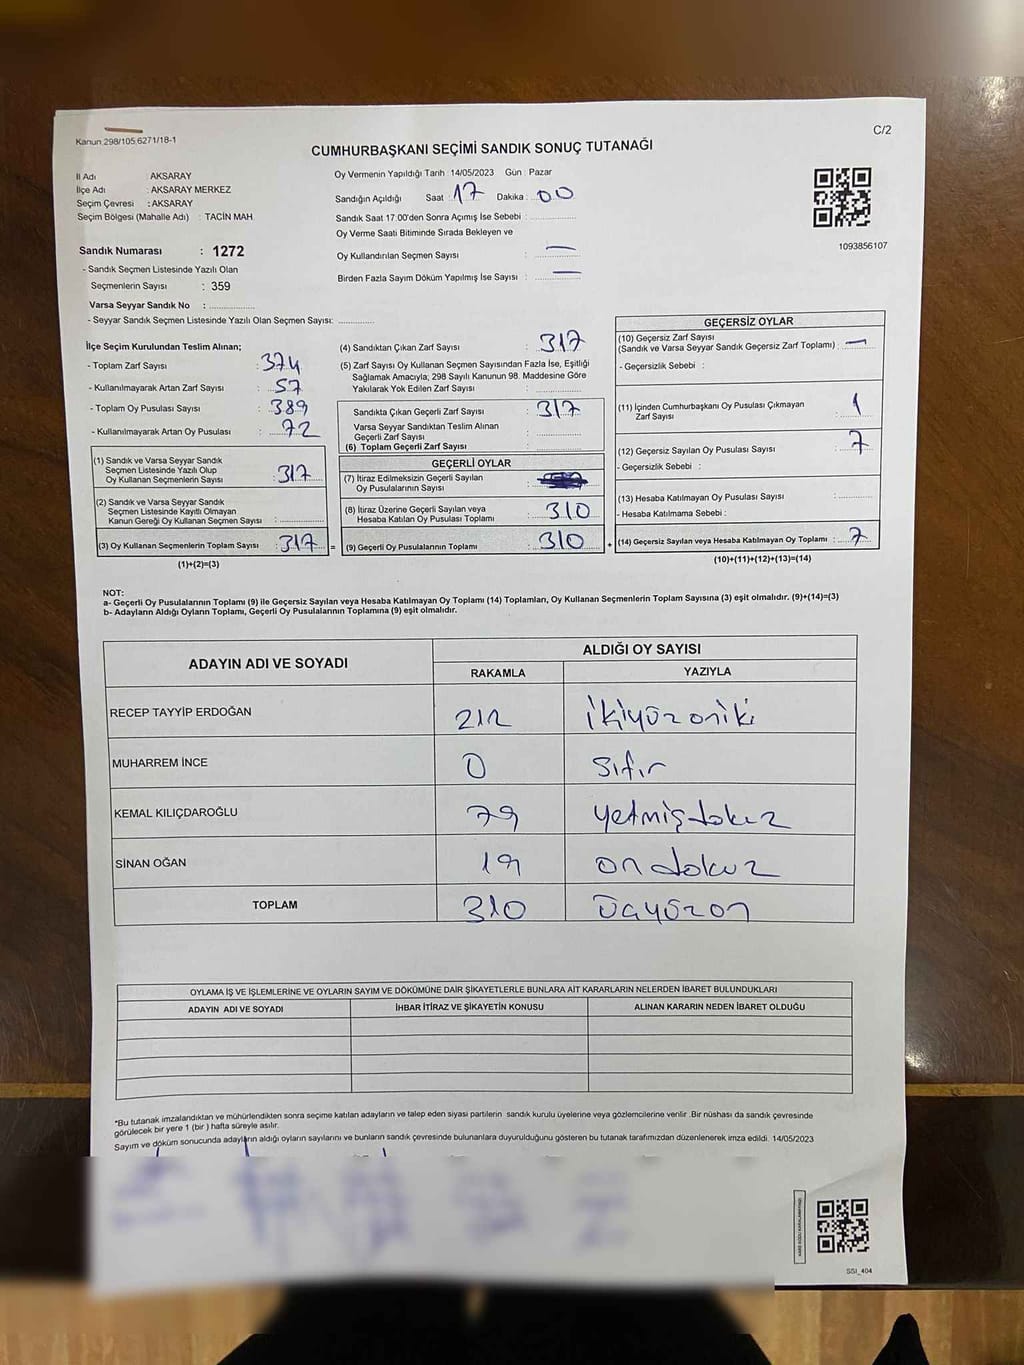 Kanun 298/105,6271/18-1
C/2
CUMHURBAŞKANI SEÇİMİ SANDIK SONUÇ TUTANAĞI
İl Adı : AKSARAY
İlçe Adı : AKSARAY MERKEZ
Seçim Çevresi : AKSARAY
Seçim Bölgesi (Mahalle Adı) : TACİN MAH.
Oy Vermenin Yapıldığı Tarih : 14/05/2023 Gün : Pazar
Sandığın Açıldığı Saat : 17 Dakika : 00
Sandık Saat 17:00'den Sonra Açımış İse Sebebi :
Oy Verme Saati Bitiminde Sırada Bekleyen ve
Oy Kullandırılan Seçmen Sayısı : —
Birden Fazla Sayım Döküm Yapılmış İse Sayısı : —
1093856107
Sandık Numarası : 1272
- Sandık Seçmen Listesinde Yazılı Olan
Seçmenlerin Sayısı : 359
Varsa Seyyar Sandık No :
- Seyyar Sandık Seçmen Listesinde Yazılı Olan Seçmen Sayısı:
İlçe Seçim Kurulundan Teslim Alınan;
- Toplam Zarf Sayısı : 374
- Kullanılmayarak Artan Zarf Sayısı : 57
- Toplam Oy Pusulası Sayısı : 389
- Kullanılmayarak Artan Oy Pusulası : 72
(1) Sandık ve Varsa Seyyar Sandık
Seçmen Listesinde Yazılı Olup
Oy Kullanan Seçmenlerin Sayısı : 317
(2) Sandık ve Varsa Seyyar Sandık
Seçmen Listesinde Kayıtlı Olmayan
Kanun Gereği Oy Kullanan Seçmen Sayısı :
(3) Oy Kullanan Seçmenlerin Toplam Sayısı : 317 =
(1)+(2)=(3)
(4) Sandıktan Çıkan Zarf Sayısı : 317
(5) Zarf Sayısı Oy Kullanan Seçmen Sayısından Fazla İse, Eşitliği
Sağlamak Amacıyla; 298 Sayılı Kanunun 98. Maddesine Göre
Yakılarak Yok Edilen Zarf Sayısı :
Sandıkta Çıkan Geçerli Zarf Sayısı : 317
Varsa Seyyar Sandıktan Teslim Alınan
Geçerli Zarf Sayısı :
(6) Toplam Geçerli Zarf Sayısı :
GEÇERLİ OYLAR
(7) İtiraz Edilmeksizin Geçerli Sayılan
Oy Pusulalarının Sayısı :
(8) İtiraz Üzerine Geçerli Sayılan veya
Hesaba Katılan Oy Pusulası Toplamı : 310
(9) Geçerli Oy Pusulalarının Toplamı : 310 +
GEÇERSİZ OYLAR
(10) Geçersiz Zarf Sayısı
(Sandık ve Varsa Seyyar Sandık Geçersiz Zarf Toplamı) : —
- Geçersizlik Sebebi :
(11) İçinden Cumhurbaşkanı Oy Pusulası Çıkmayan
Zarf Sayısı : 1
(12) Geçersiz Sayılan Oy Pusulası Sayısı : 7
- Geçersizlik Sebebi :
(13) Hesaba Katılmayan Oy Pusulası Sayısı :
- Hesaba Katılmama Sebebi :
(14) Geçersiz Sayılan veya Hesaba Katılmayan Oy Toplamı : 7
(10)+(11)+(12)+(13)=(14)
NOT:
a- Geçerli Oy Pusulalarının Toplamı (9) ile Geçersiz Sayılan veya Hesaba Katılmayan Oy Toplamı (14) Toplamları, Oy Kullanan Seçmenlerin Toplam Sayısına (3) eşit olmalıdır. (9)+(14)=(3)
b- Adayların Aldığı Oyların Toplamı, Geçerli Oy Pusulalarının Toplamına (9) eşit olmalıdır.
ADAYIN ADI VE SOYADI
ALDIĞI OY SAYISI
RAKAMLA YAZIYLA
RECEP TAYYİP ERDOĞAN 212 ikiyüzoniki
MUHARREM İNCE 0 Sıfır
KEMAL KILIÇDAROĞLU 79 yetmişdokuz
SİNAN OĞAN 19 ondokuz
TOPLAM 310 üçyüzon
OYLAMA İŞ VE İŞLEMLERİNE VE OYLARIN SAYIM VE DÖKÜMÜNE DAİR ŞİKAYETLERLE BUNLARA AİT KARARLARIN NELERDEN İBARET BULUNDUKLARI
ADAYIN ADI VE SOYADI İHBAR İTİRAZ VE ŞİKAYETİN KONUSU ALINAN KARARIN NEDEN İBARET OLDUĞU
*Bu tutanak imzalandıktan ve mühürlendikten sonra seçime katılan adayların ve talep eden siyasi partilerin sandık kurulu üyelerine veya gözlemcilerine verilir .Bir nüshası da sandık çevresinde
görülecek bir yere 1 (bir ) hafta süreyle asılır.
Sayım ve döküm sonucunda adayların aldığı oyların sayılarını ve bunların sandık çevresinde bulunanlara duyurulduğunu gösteren bu tutanak tarafımızdan düzenlenerek imza edildi. 14/05/2023
SSI_404